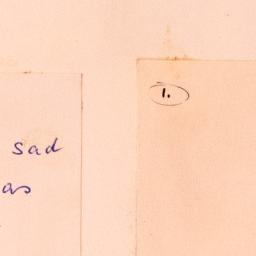 sad
as
1.